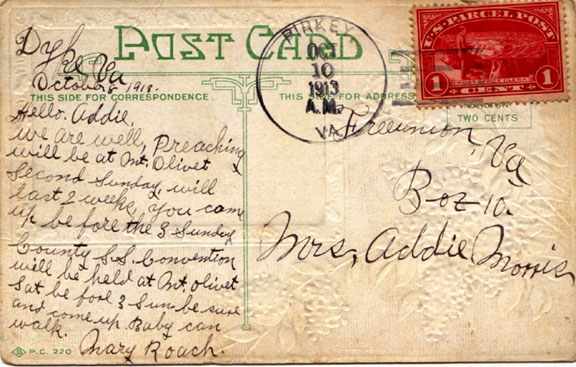 POST CARD
Dyke Va
October 8 1913.
THIS SIDE FOR CORRESPONDENCE.
THIS SIDE FOR ADDRESS
Hello. Addie,
we are well, Preaching
will be at Mt. Olivet
Second Sunday, will
last 2 weeks, you come
up be fore the 3 Sunday
County S.S. Convention
will be held at Mt. Olivet
Sat be fore 3 Sun be sure
and come up. Baby can
walk.
Mary Roach.
P.C. 220
BIRKEY
OCT
10
1913
A.M.
VA.
U.S. PARCEL POST
POST OFFICE CLERK
1 CENT 1
TWO CENTS
Freeunion, Va
Box 10.
Mrs, Addie Morris,